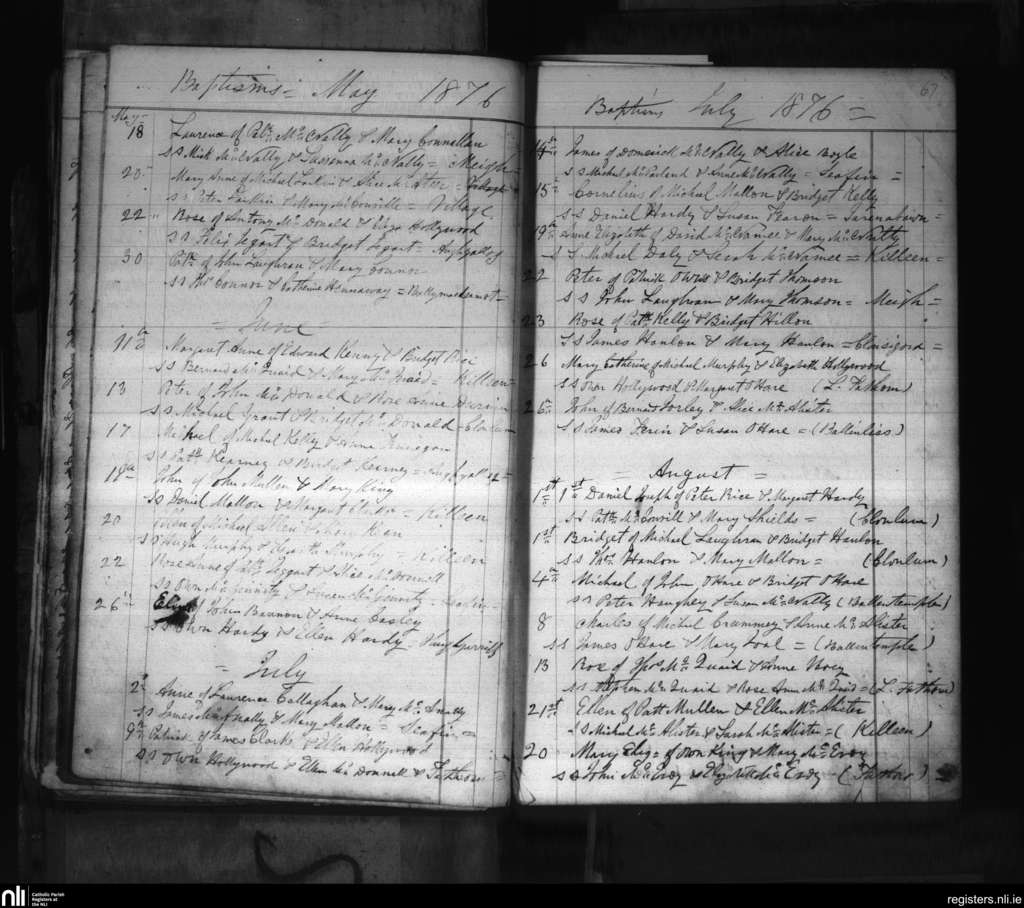 Baptisms = May 1876
May
18 Laurence of Patk McNally & Mary Connellan
S S Mick McNally & Susanna McNally = Meigh =
Mary Anne of Michael Larkin & Alice McAteer = Village
S S Peter Larkin & Mary McConville = Village
22 Rose of Antony McDonald & Eliza Hollywood
S S Felix Segart & Bridget Segart
30 Patk of John Laughran & Mary Connor
S S Thos Connor & Catherine Hannaway =
= June
11th Margaret Anne of Edward Kenny & Bridget Rice
S S Bernard McQuaid & Mary McQuaid = Killeen =
13 Peter of John McDonald & Rose Anne
S S Michael Grant & Bridget McDonald = Clonlum
17 Michael of Michael Kelly & Anne Finegan
S S Patk Kearney & Bridget Kearney =
18th John of John Mullen & Mary King
S S Daniel Mallon & Margaret = Killeen
20 Ellen of Michael
S S Hugh Murphy & Murphy = Killeen
22 Rose Anne of & Alice McDonnell
S S Own McGinnity &
26th of John Bannon & Anne
S S Own Hardy & Ellen Hardy =
= July
2nd Anne of Laurence Callaghan & Mary McAnally
S S James McAnally & Mary Mallon = Seafin =
9th Patrick of James Clarke & Ellen Hollywood
S S Own Hollywood & Ellen McDonnell =
67
Baptisms July 1876 =
14th James of Domenick McNally & Alice Boyle
S S Michael McParland & Anne McNally = Seafin =
15th Cornelius of Michael Mallon & Bridget Kelly
S S Daniel Hardy & Susan Fearon =
19th Anne Elizabeth of David McNamee & Mary McNally
S S Michael Daly & Sarah McNamee = Killeen =
22 Peter of Patrick & Bridget Thomson
S S John Laughran & Mary Thomson = Meigh =
23 Rose of Patk Kelly & Bridget Hillon
S S James Hanlon & Mary Hanlon =
26 Mary Catherine of Michael Murphy & Elizabeth Hollywood
S S Own Hollywood & Margaret OHare (L. Fathom)
26th John of Bernard Torley & Alice McAlister
S S James & Susan OHare = (Ballinliss)
= August =
1st 1st Daniel Joseph of Peter Rice & Margaret Hardy
S S Patk & Mary Shields = (Clonlum)
1st Bridget of Michael Laughran & Bridget Hanlon
S S Thos Hanlon & Mary Mallon = (Clonlum)
4th Michael of John OHare & Bridget OHare
S S Peter Haughey & Susan McNally (Ballintemple)
8 Charles of Michael Crummey & Anne McAlister
S S James OHare & Mary Toal = (Ballintemple)
13 Rose of Thos McQuaid & Anne
S S Stephen McQuaid & Rose Ann McQuaid = (L. Fathom)
21st Ellen of Patt Mullen & Ellen McAlister
S S Michael McAlister & Sarah McAlister = (Killeen)
20 Mary Eliza = of Own King & Mary McEvoy
S S John McEvoy & Elizabeth McEvoy = (Fathom)
nli Catholic Parish Registers at the NLI
registers.nli.ie